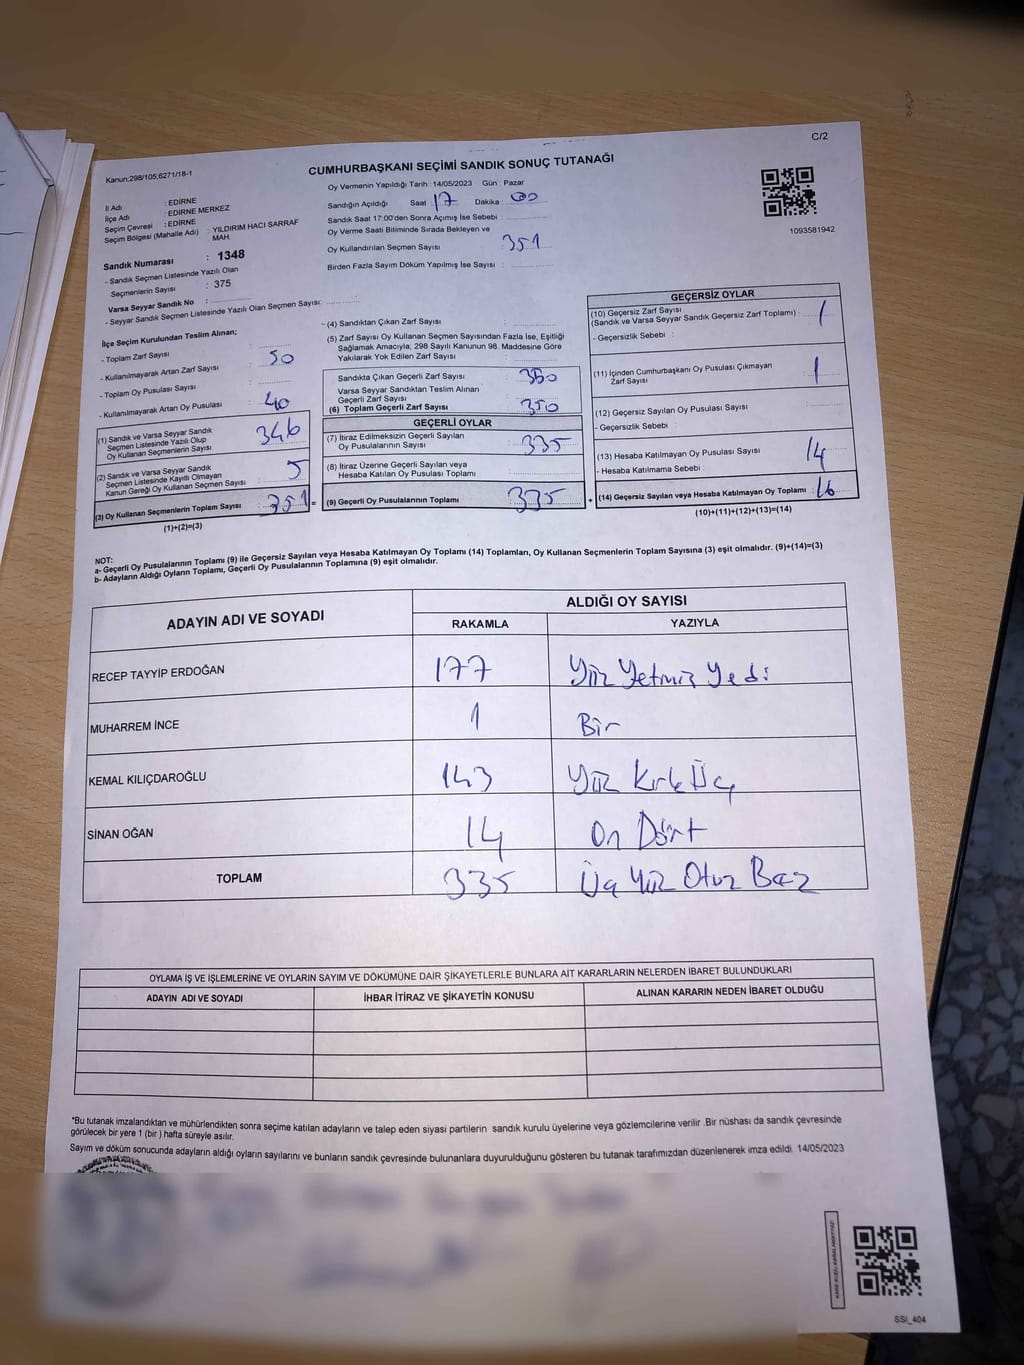 C/2
Kanun;298/105,6271/18-1
CUMHURBAŞKANI SEÇİMİ SANDIK SONUÇ TUTANAĞI
İl Adı : EDİRNE
İlçe Adı : EDİRNE MERKEZ
Seçim Çevresi : EDİRNE
Seçim Bölgesi (Mahalle Adı) : YILDIRIM HACI SARRAF
MAH.
Sandık Numarası : 1348
- Sandık Seçmen Listesinde Yazılı Olan
Seçmenlerin Sayısı : 375
Varsa Seyyar Sandık No :
- Seyyar Sandık Seçmen Listesinde Yazılı Olan Seçmen Sayısı:
Oy Vermenin Yapıldığı Tarih : 14/05/2023 Gün : Pazar
Sandığın Açıldığı Saat : 17 Dakika : 00
Sandık Saat 17:00'den Sonra Açımış İse Sebebi :
Oy Verme Saati Bitiminde Sırada Bekleyen ve
Oy Kullandırılan Seçmen Sayısı : 351
Birden Fazla Sayım Döküm Yapılmış İse Sayısı :
1093581942
İlçe Seçim Kurulundan Teslim Alınan;
- Toplam Zarf Sayısı :
- Kullanılmayarak Artan Zarf Sayısı : 50
- Toplam Oy Pusulası Sayısı :
- Kullanılmayarak Artan Oy Pusulası : 40
(1) Sandık ve Varsa Seyyar Sandık
Seçmen Listesinde Yazılı Olup
Oy Kullanan Seçmenlerin Sayısı : 346
(2) Sandık ve Varsa Seyyar Sandık
Seçmen Listesinde Kayıtlı Olmayan
Kanun Gereği Oy Kullanan Seçmen Sayısı : 5
(3) Oy Kullanan Seçmenlerin Toplam Sayısı : 351 =
(1)+(2)=(3)
(4) Sandıktan Çıkan Zarf Sayısı :
(5) Zarf Sayısı Oy Kullanan Seçmen Sayısından Fazla İse, Eşitliği
Sağlamak Amacıyla; 298 Sayılı Kanunun 98. Maddesine Göre
Yakılarak Yok Edilen Zarf Sayısı :
Sandıkta Çıkan Geçerli Zarf Sayısı : 350
Varsa Seyyar Sandıktan Teslim Alınan
Geçerli Zarf Sayısı :
(6) Toplam Geçerli Zarf Sayısı : 350
GEÇERLİ OYLAR
(7) İtiraz Edilmeksizin Geçerli Sayılan
Oy Pusulalarının Sayısı : 335
(8) İtiraz Üzerine Geçerli Sayılan veya
Hesaba Katılan Oy Pusulası Toplamı :
(9) Geçerli Oy Pusulalarının Toplamı : 335 +
GEÇERSİZ OYLAR
(10) Geçersiz Zarf Sayısı
(Sandık ve Varsa Seyyar Sandık Geçersiz Zarf Toplamı) : 1
- Geçersizlik Sebebi :
(11) İçinden Cumhurbaşkanı Oy Pusulası Çıkmayan
Zarf Sayısı : 1
(12) Geçersiz Sayılan Oy Pusulası Sayısı :
- Geçersizlik Sebebi :
(13) Hesaba Katılmayan Oy Pusulası Sayısı : 14
- Hesaba Katılmama Sebebi :
(14) Geçersiz Sayılan veya Hesaba Katılmayan Oy Toplamı : 16
(10)+(11)+(12)+(13)=(14)
NOT:
a- Geçerli Oy Pusulalarının Toplamı (9) ile Geçersiz Sayılan veya Hesaba Katılmayan Oy Toplamı (14) Toplamları, Oy Kullanan Seçmenlerin Toplam Sayısına (3) eşit olmalıdır. (9)+(14)=(3)
b- Adayların Aldığı Oyların Toplamı, Geçerli Oy Pusulalarının Toplamına (9) eşit olmalıdır.
ADAYIN ADI VE SOYADI
ALDIĞI OY SAYISI
RAKAMLA YAZIYLA
RECEP TAYYİP ERDOĞAN 177 Yüz Yetmiş Yedi
MUHARREM İNCE 1 Bir
KEMAL KILIÇDAROĞLU 143 Yüz Kırk Üç
SİNAN OĞAN 14 On Dört
TOPLAM 335 Üç Yüz Otuz Beş
OYLAMA İŞ VE İŞLEMLERİNE VE OYLARIN SAYIM VE DÖKÜMÜNE DAİR ŞİKAYETLERLE BUNLARA AİT KARARLARIN NELERDEN İBARET BULUNDUKLARI
ADAYIN ADI VE SOYADI İHBAR İTİRAZ VE ŞİKAYETİN KONUSU ALINAN KARARIN NEDEN İBARET OLDUĞU
*Bu tutanak imzalandıktan ve mühürlendikten sonra seçime katılan adayların ve talep eden siyasi partilerin sandık kurulu üyelerine veya gözlemcilerine verilir .Bir nüshası da sandık çevresinde
görülecek bir yere 1 (bir ) hafta süreyle asılır.
Sayım ve döküm sonucunda adayların aldığı oyların sayılarını ve bunların sandık çevresinde bulunanlara duyurulduğunu gösteren bu tutanak tarafımızdan düzenlenerek imza edildi. 14/05/2023
SSI_404